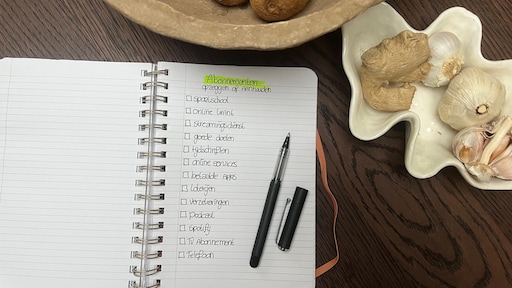 Abonnementen
opzeggen of aanhouden
sportschool
online krant
streamingsdienst
goede doelen
tijdschriften
online services
betaalde apps
Loterijen
verzekeringen
Podcast
Spotify
TV Abonnement
Telefoon